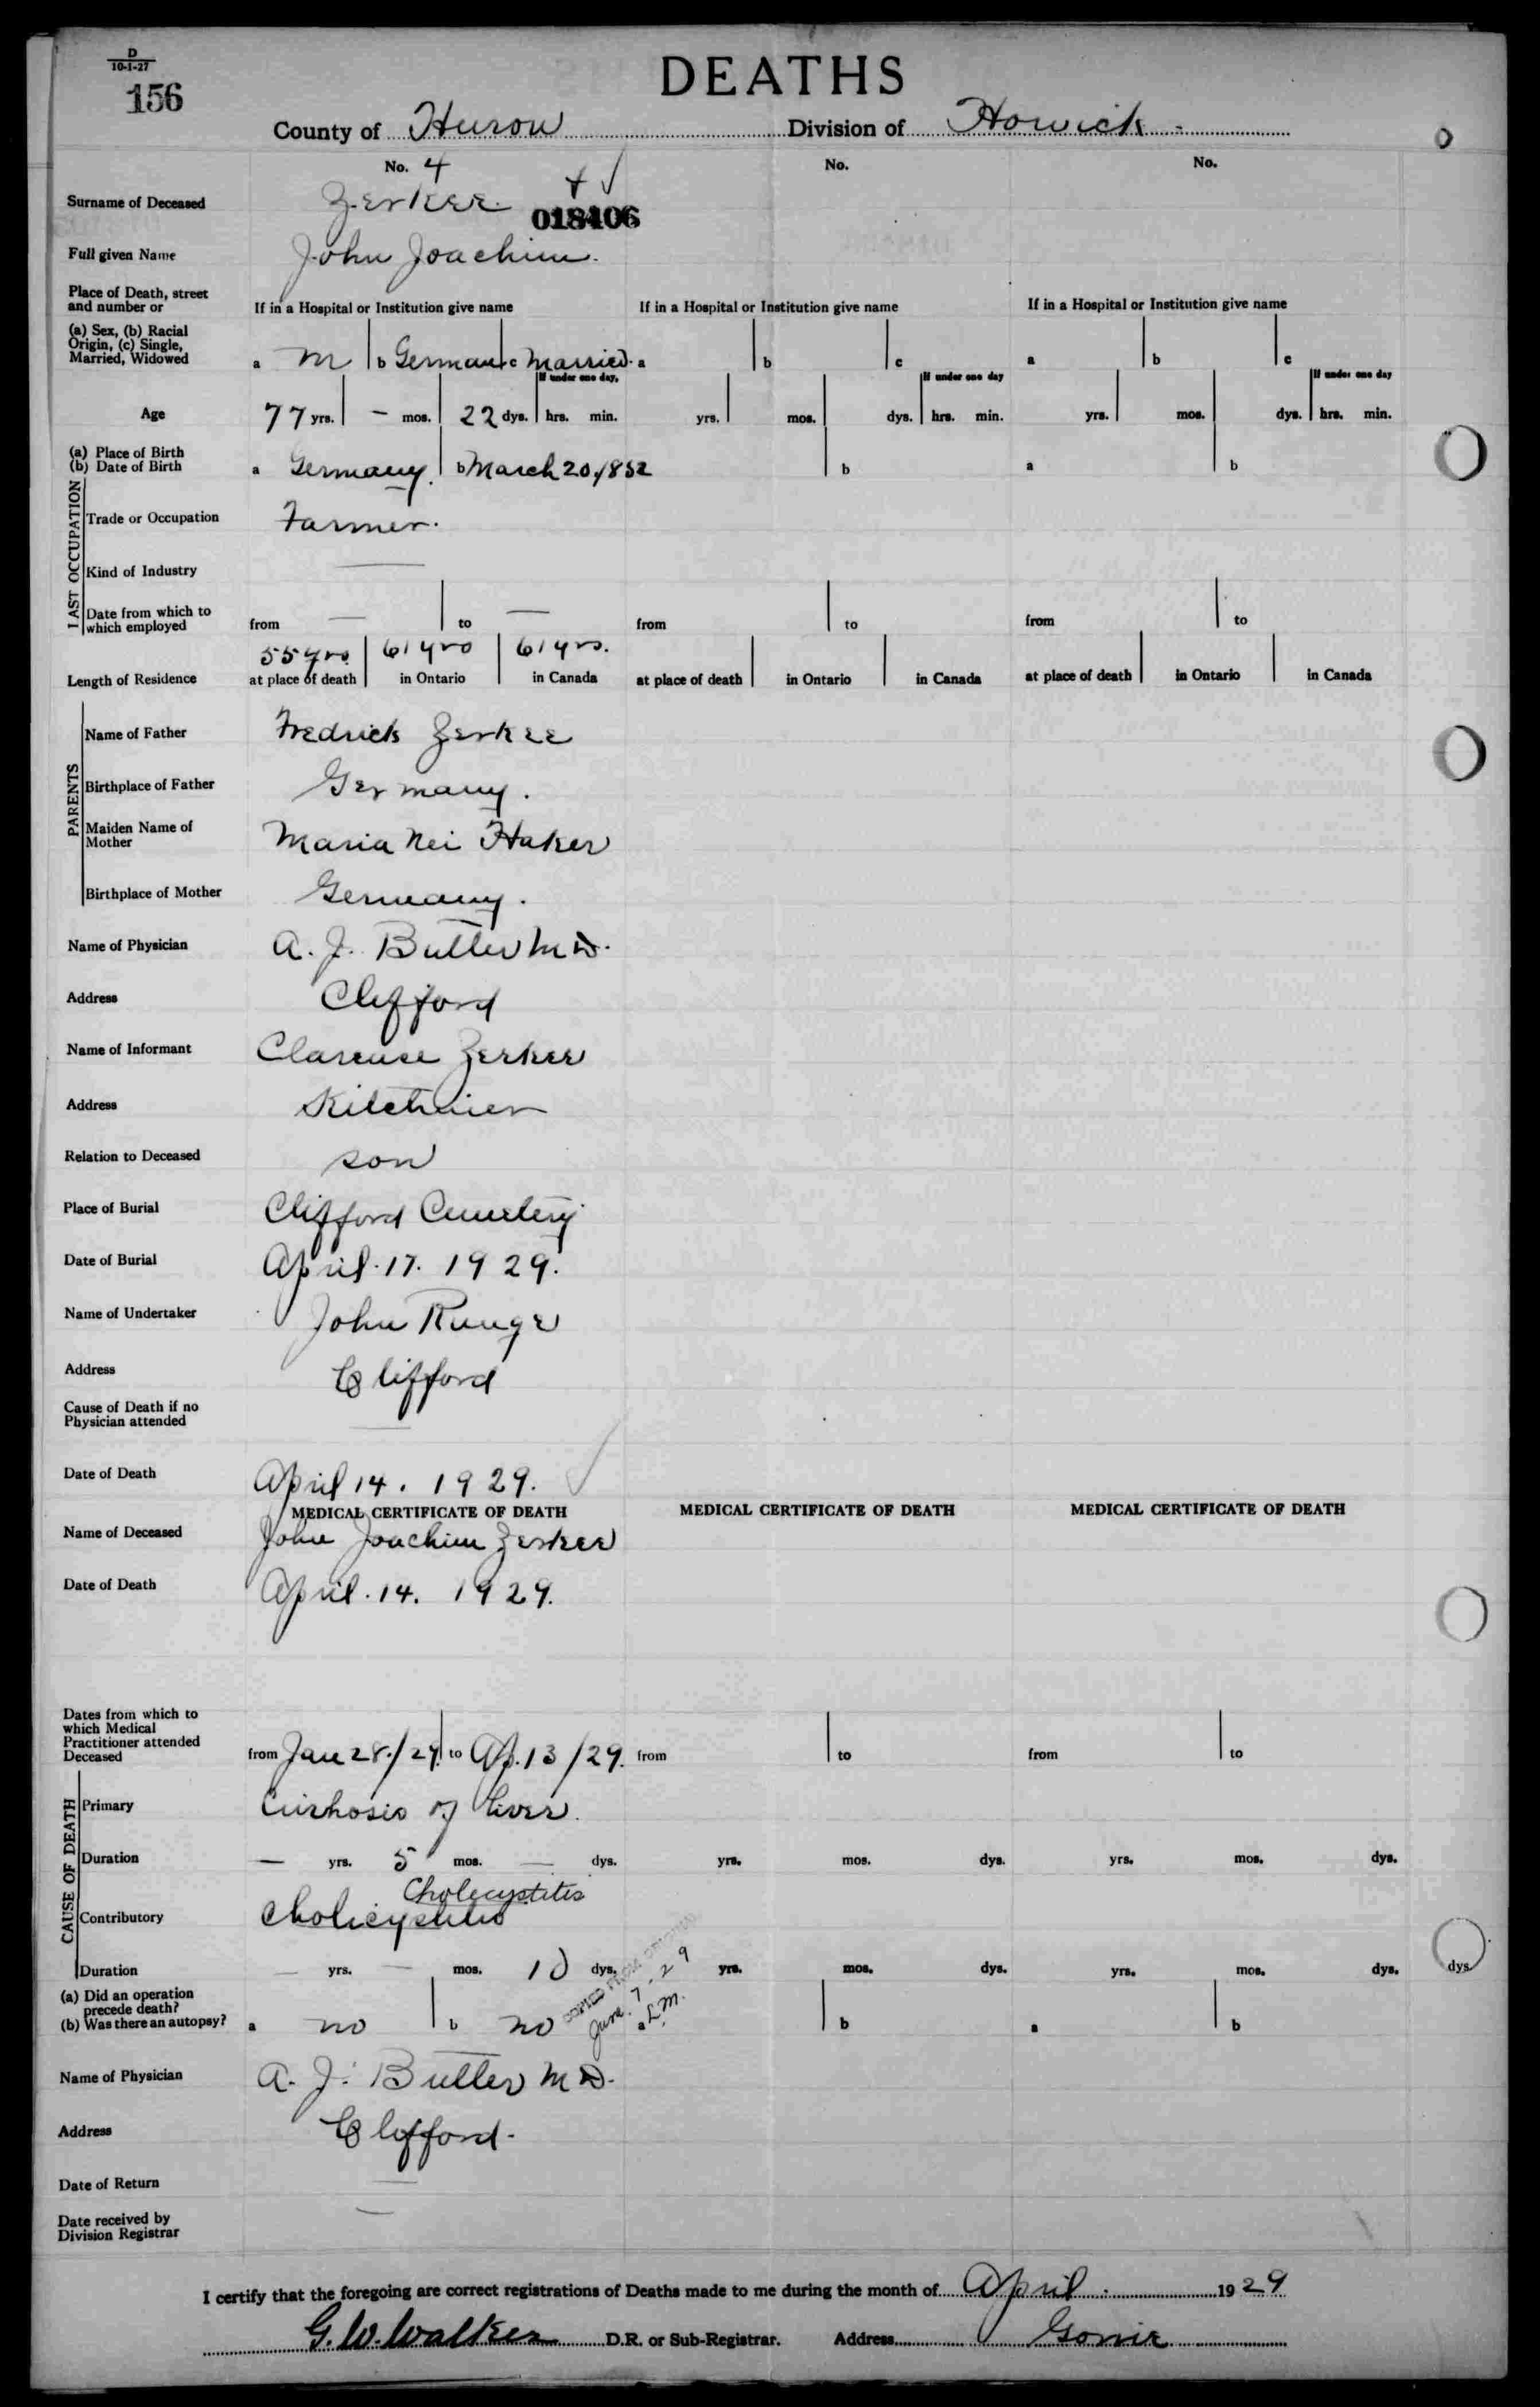 D
10-1-27
156
DEATHS
County of Huron Division of Howick
No. 4 No. No.
Surname of Deceased Zerker
018406
Full given Name John Joachim.
Place of Death, street
and number or If in a Hospital or Institution give name If in a Hospital or Institution give name If in a Hospital or Institution give name
(a) Sex, (b) Racial
Origin, (c) Single,
Married, Widowed a M b German c Married. a b c a b c
If under one day, If under one day If under one day
Age 77 yrs. – mos. 22 dys. hrs. min. yrs. mos. dys. hrs. min. yrs. mos. dys. hrs. min.
(a) Place of Birth
(b) Date of Birth a Germany. b March 20/1852 b a b
LAST OCCUPATION
Trade or Occupation Farmer.
Kind of Industry —
Date from which to
which employed from — to — from to from to
55 yrs. 61 yrs 61 yrs.
Length of Residence at place of death in Ontario in Canada at place of death in Ontario in Canada at place of death in Ontario in Canada
PARENTS
Name of Father Fredrick Zerker
Birthplace of Father Germany.
Maiden Name of
Mother Maria Nei Haker
Birthplace of Mother Germany.
Name of Physician A. J. Butler M.D.
Address Clifford
Name of Informant Clarence Zerker
Address Kitchener
Relation to Deceased son
Place of Burial Clifford Cemetery
Date of Burial April. 17. 1929.
Name of Undertaker John Runge
Address Clifford
Cause of Death if no
Physician attended —
Date of Death April 14. 1929.
MEDICAL CERTIFICATE OF DEATH MEDICAL CERTIFICATE OF DEATH MEDICAL CERTIFICATE OF DEATH
Name of Deceased John Joachim Zerker
Date of Death April. 14. 1929.
Dates from which to
which Medical
Practitioner attended
Deceased from Jan 28./29. to Ap. 13/29. from to from to
CAUSE OF DEATH
Primary Cirrhosis of Liver.
Duration — yrs. 5 mos. — dys. yrs. mos. dys. yrs. mos. dys.
Cholecystitis
Contributory Cholicystitis
Duration — yrs. — mos. 10 dys. yrs. mos. dys. yrs. mos. dys. dys.
June. 7-29
L.M.
(a) Did an operation
precede death?
(b) Was there an autopsy? a no b no a b a b
Name of Physician A. J. Butler M.D.
Address Clifford.
Date of Return —
Date received by
Division Registrar —
I certify that the foregoing are correct registrations of Deaths made to me during the month of April. 1929
G. W. Walker D.R. or Sub-Registrar. Address Gorrie